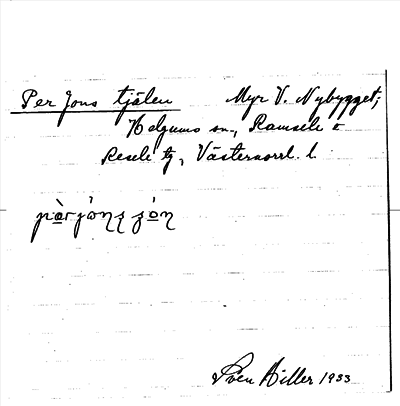 Per Jons tjälen Myr V. Nybygget,
Helgums sn., Ramsele o
Resele tg, Västernorrl. l.
Sven Hiller 1933